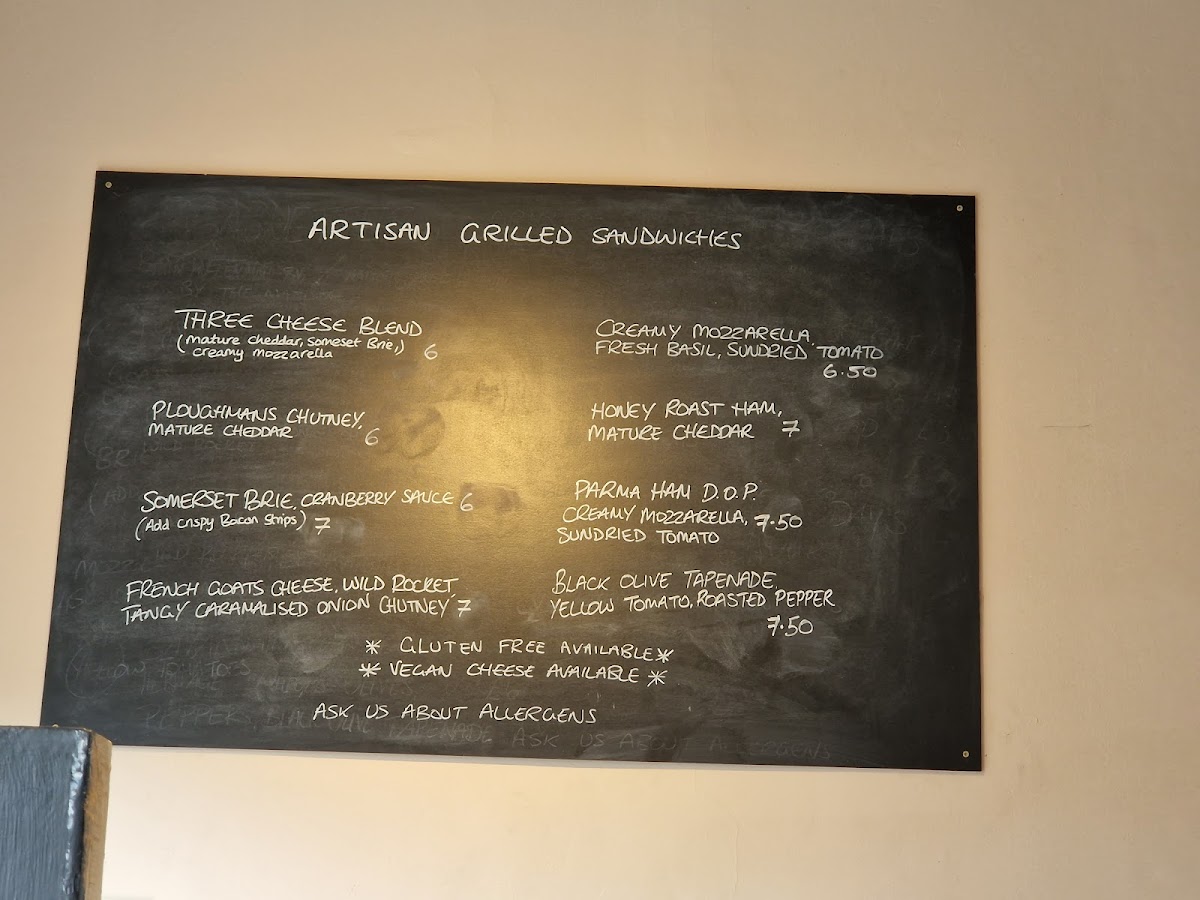 ARTISAN GRILLED SANDWICHES
THREE CHEESE BLEND
(mature cheddar, someset Brie,)
creamy mozzarella 6
PLOUGHMANS CHUTNEY,
MATURE CHEDDAR 6
SOMERSET BRIE, CRANBERRY SAUCE 6
(Add crispy Bacon Strips) 7
FRENCH GOATS CHEESE, WILD ROCKET,
TANGY CARAMALISED ONION CHUTNEY 7
CREAMY MOZZARELLA,
FRESH BASIL, SUNDRIED TOMATO
6.50
HONEY ROAST HAM,
MATURE CHEDDAR 7
PARMA HAM D.O.P.
CREAMY MOZZARELLA, 7.50
SUNDRIED TOMATO
BLACK OLIVE TAPENADE,
YELLOW TOMATO, ROASTED PEPPER
7.50
* GLUTEN FREE AVAILABLE *
* VEGAN CHEESE AVAILABLE *
ASK US ABOUT ALLERGENS
ASK US ABOUT ALLERGENS